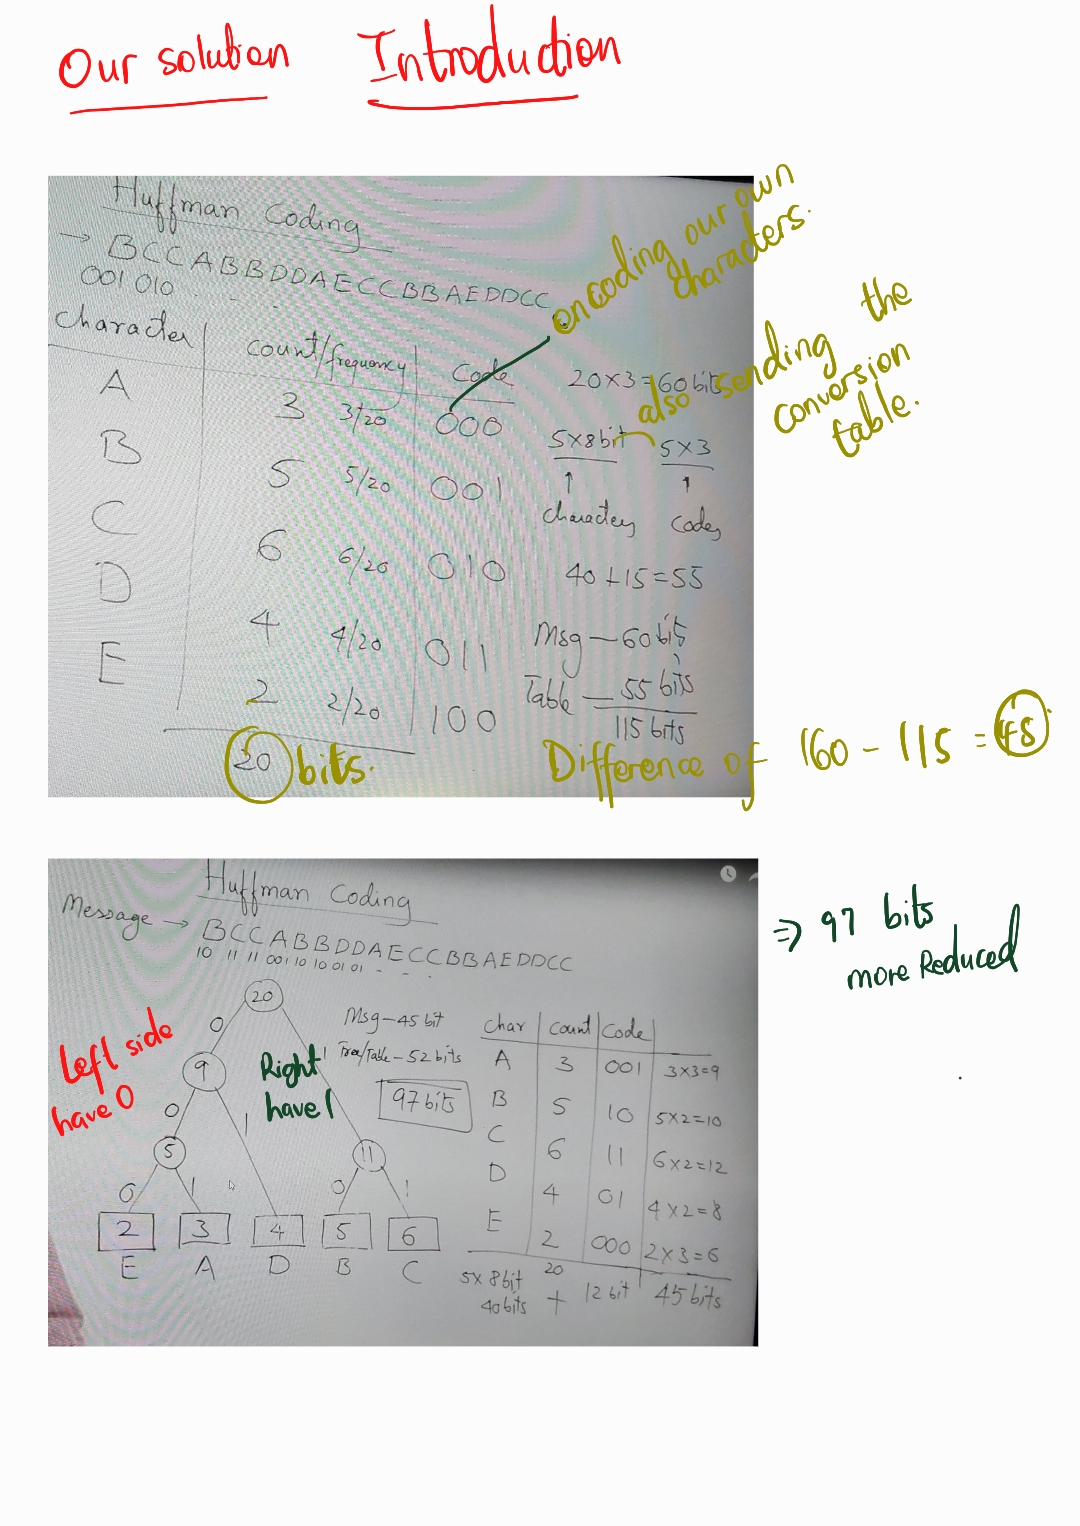 Our solution Introduction
Huffman Coding
→ BCCABBDDAECCBBAEDDCC
001 010
encoding our own
characters.
character count/frequency Code
A 3 3/20 000
B 5 5/20 001
C 6 6/20 010
D 4 4/20 011
E 2 2/20 100
20 bits.
20×3=60bits
also sending the
conversion
table.
5×8bit 5×3
↑ ↑
characters codes
40+15=55
Msg — 60bits
Table — 55 bits
115 bits
Difference of 160 - 115 =
Huffman Coding
Message → BCCABBDDAECCBBAEDDCC
10 11 11 001 10 10 01 01
⇒ 97 bits
more Reduced
Left side
have 0
Right
have 1
20
0 1
9
0 1
5 11
0 1 0 1
2 3 4 5 6
E A D B C
Msg—45bit
Tree/Table—52bits
97bits
Char Count Code
A 3 001 3×3=9
B 5 10 5×2=10
C 6 11 6×2=12
D 4 01 4×2=8
E 2 000 2×3=6
5×8bit 20 12bit 45bits
40bits +